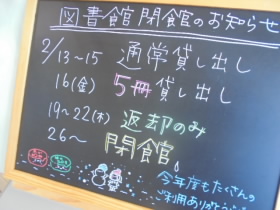 図書館閉館のお知らせ
2/13~15 通学貸し出し
16(金) 5冊貸し出し
19~22(木) 返却のみ
26~ 閉館。
今年度もたくさんの
ご利用ありがとう